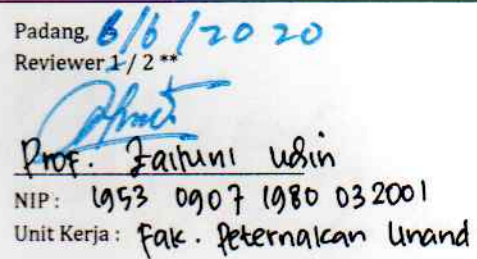 Padang, 6/6/2020
Reviewer 1 / 2 **
Prof. Zaituni Udin
NIP : 1953 0907 1980 03 2001
Unit Kerja : Fak. Peternakan Unand